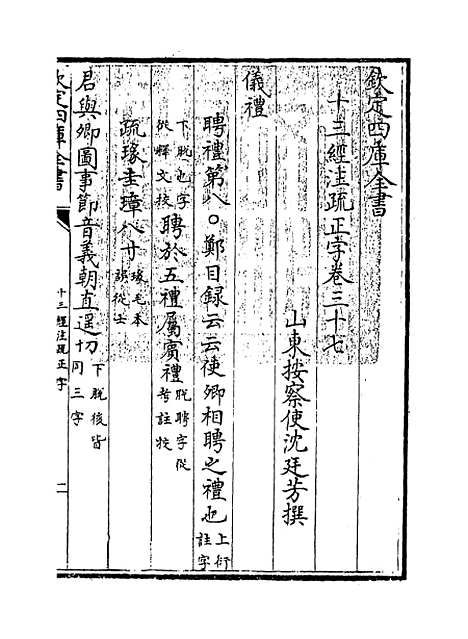 欽定四庫全書
十三經注疏正字卷三十七
山東按察使沈廷芳撰
儀禮
聘禮第八○鄭目録云云使卿相聘之禮也上衍註字
下脱也字從釋文挍聘於五禮屬賓禮脱聘字從考註挍
疏瑑圭璋八寸瑑毛本誤從士
君與卿圖事節音義朝直遥切下脱後皆同三字
欽定四庫全書
十三經注疏正字